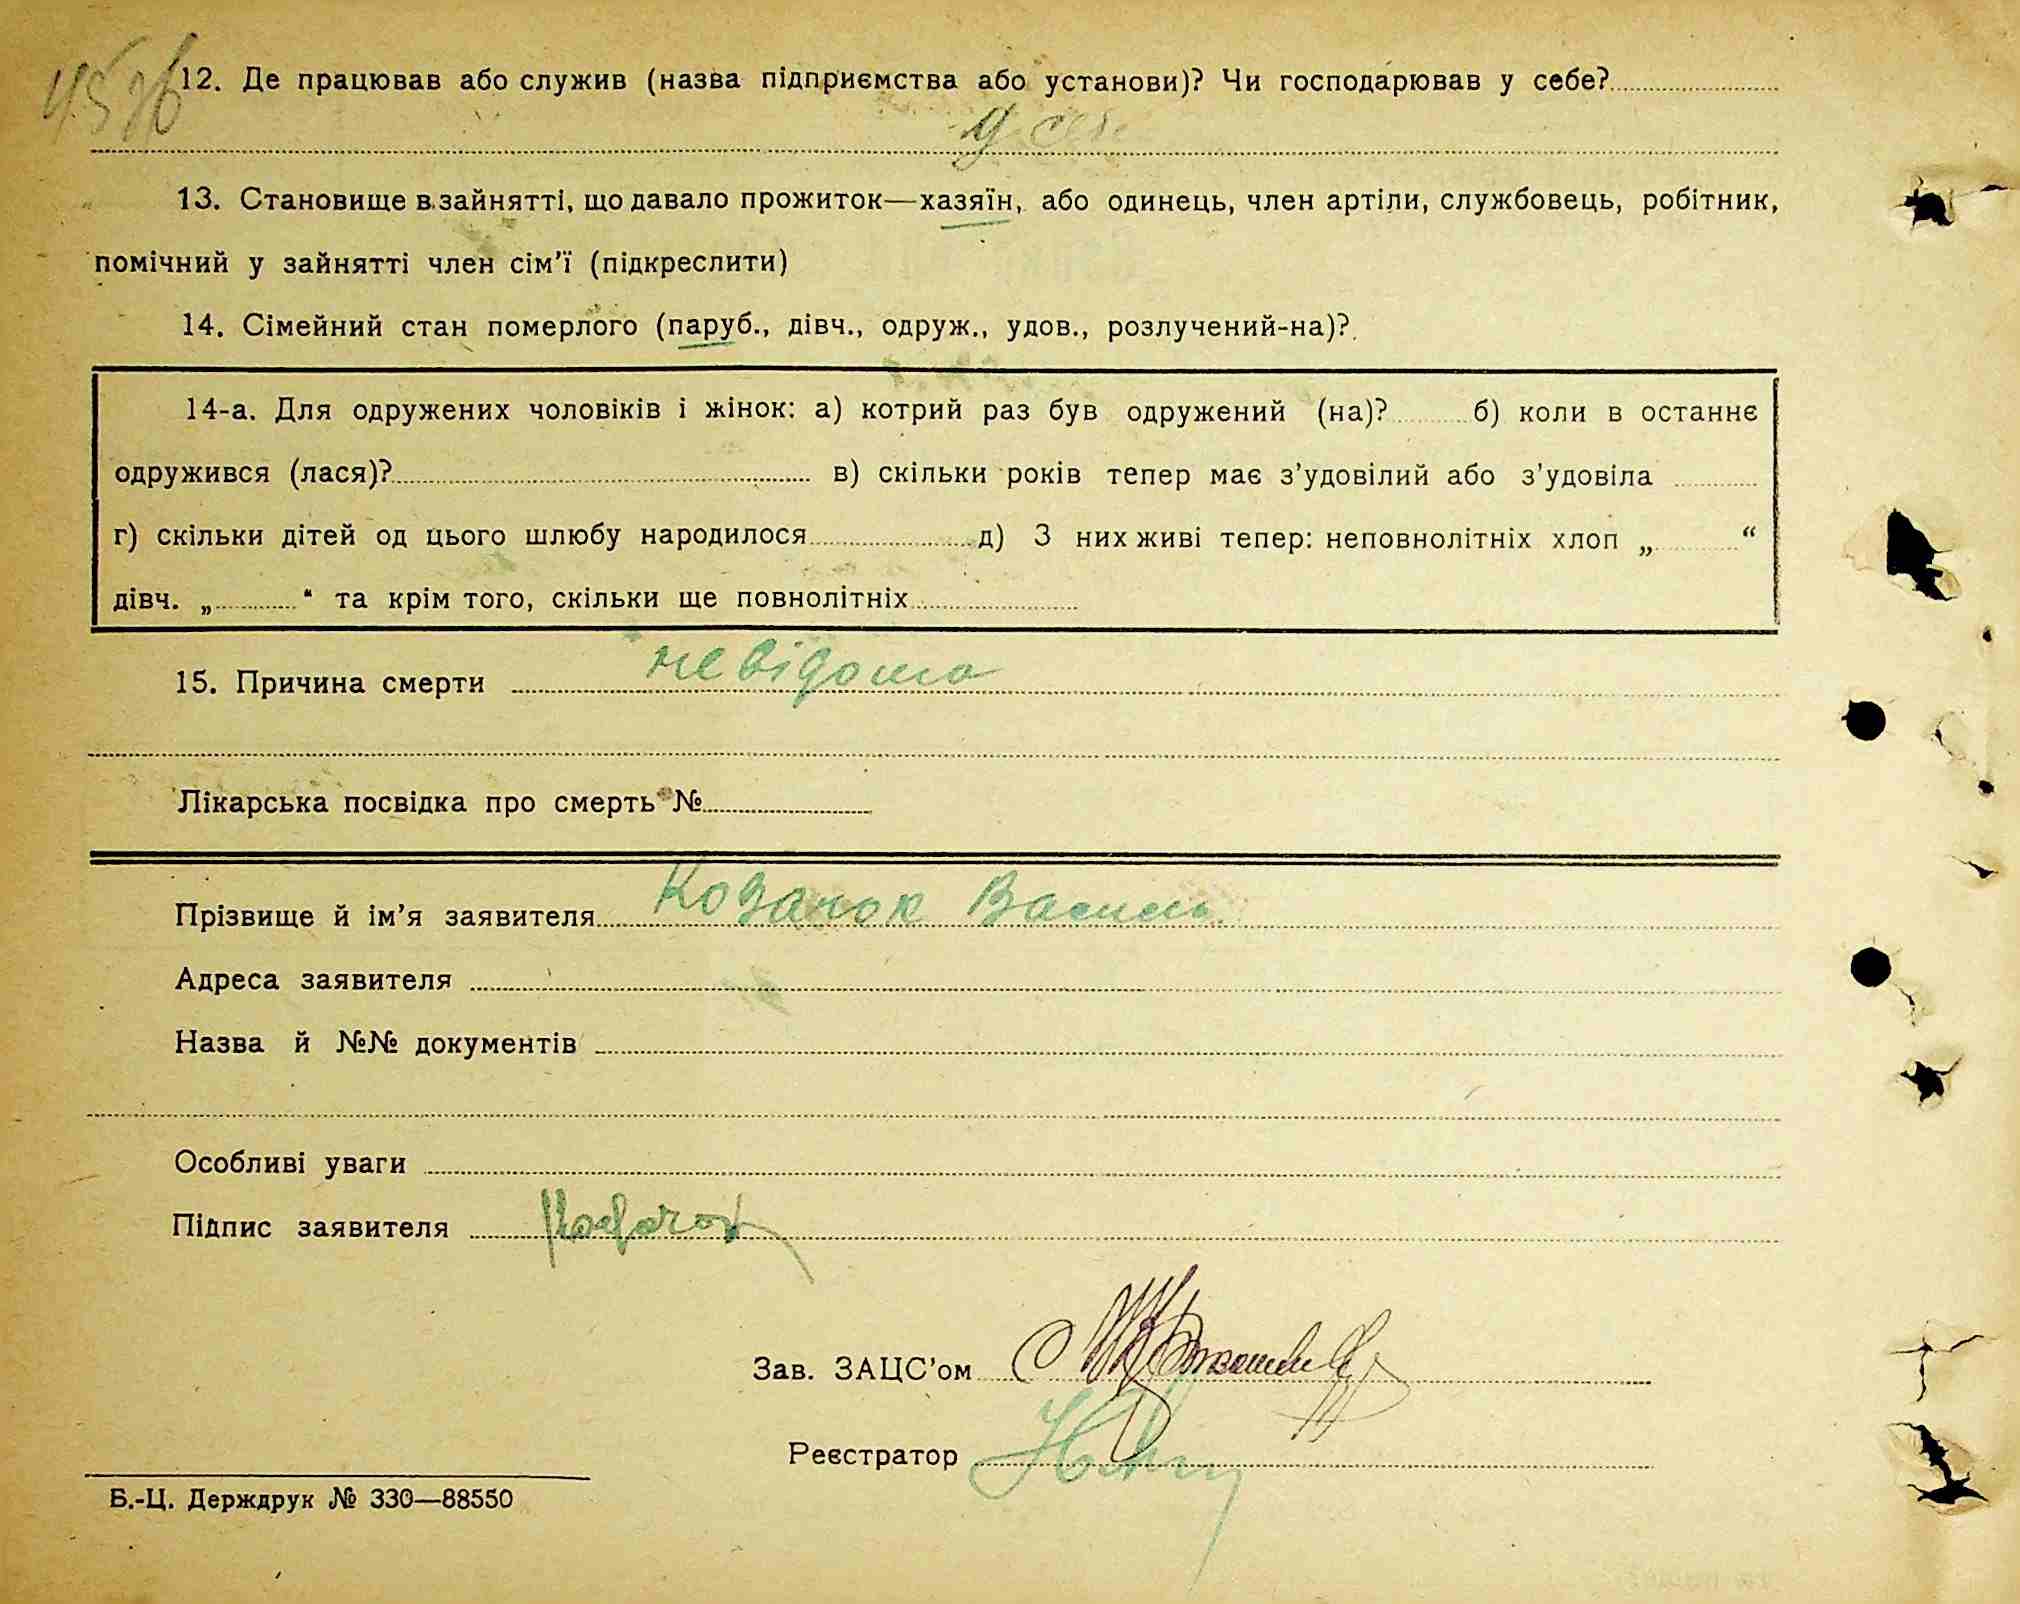 12. Де працював або служив (назва підприємства або установи)? Чи господарював у себе?
у себе
13. Становище в зайнятті, що давало прожиток—хазяїн, або одинець, член артіли, службовець, робітник,
помічний у зайнятті член сім'ї (підкреслити)
14. Сімейний стан померлого (паруб., дівч., одруж., удов., розлучений-на)?
14-а. Для одружених чоловіків і жінок: а) котрий раз був одружений (на)? б) коли в останнє
одружився (лася)? в) скільки років тепер має з'удовілий або з'удовіла
г) скільки дітей од цього шлюбу народилося д) З них живі тепер: неповнолітніх хлоп „ “
дівч. „ “ та крім того, скільки ще повнолітніх
невідома
15. Причина смерти
Лікарська посвідка про смерть №
Прізвище й ім'я заявителя Козачок Василь
Адреса заявителя
Назва й №№ документів
Особливі уваги
Підпис заявителя Козачок
Зав. ЗАЦС'ом
Реєстратор
Б.-Ц. Держдрук № 330—88550